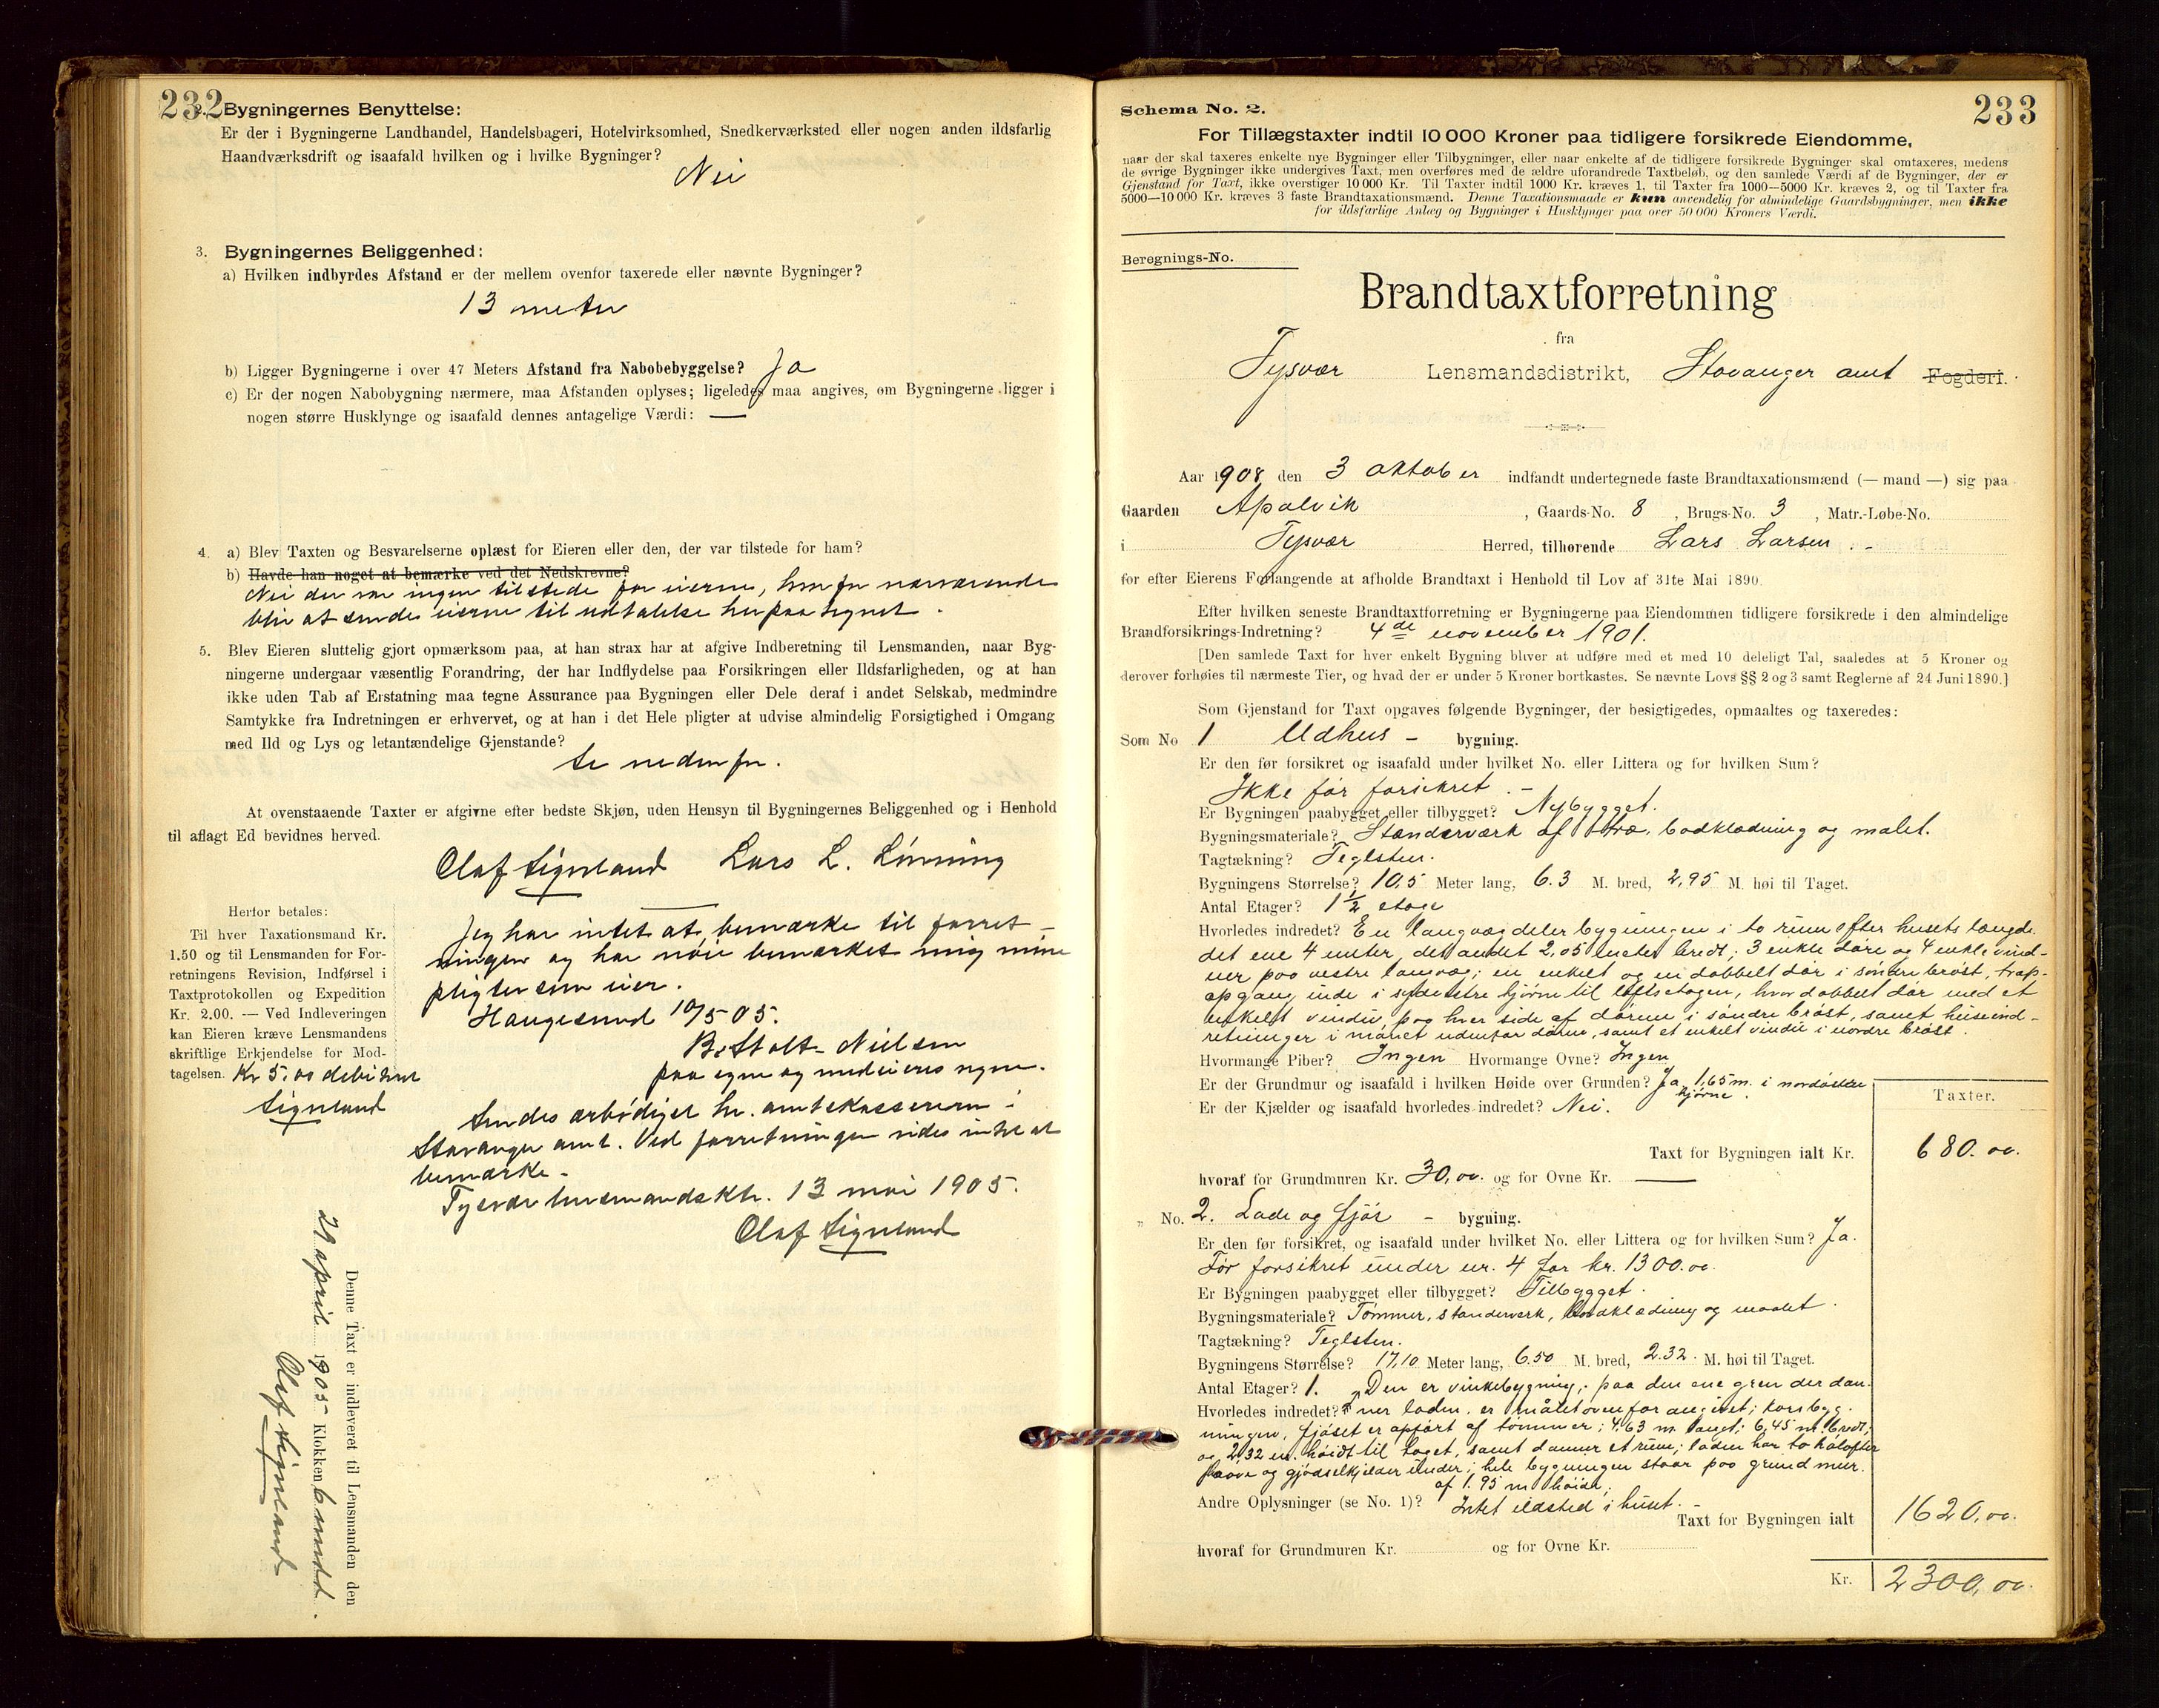 232
2. Bygningernes Benyttelse:
Er der i Bygningerne Landhandel, Handelsbageri, Hotelvirksomhed, Snedkerværksted eller nogen anden ildsfarlig
Haandværksdrift og isaafald hvilken og i hvilke Bygninger?
Nei
3. Bygningernes Beliggenhed:
a) Hvilken indbyrdes Afstand er der mellem ovenfor taxerede eller nævnte Bygninger?
13 meter
b) Ligger Bygningerne i over 47 Meters Afstand fra Nabobebyggelse? Ja
c) Er der nogen Nabobygning nærmere, maa Afstanden oplyses; ligeledes maa angives, om Bygningerne ligger i
nogen større Husklynge og isaafald dennes antagelige Værdi: —
4. a) Blev Taxten og Besvarelserne oplæst for Eieren eller den, der var tilstede for ham?
b) Havde han noget at bemærke ved det Nedskrevne?
Nei der var ingen tilstede for eierne, hvorfor nærværende
blir at sende eierne til udtalelse herpaa tegnet.
5. Blev Eieren sluttelig gjort opmærksom paa, at han strax har at afgive Indberetning til Lensmanden, naar Byg-
ningerne undergaar væsentlig Forandring, der har Indflydelse paa Forsikringen eller Ildsfarligheden, og at han
ikke uden Tab af Erstatning maa tegne Assurance paa Bygningen eller Dele deraf i andet Selskab, medmindre
Samtykke fra Indretningen er erhvervet, og at han i det Hele pligter at udvise almindelig Forsigtighed i Omgang
med Ild og Lys og letantændelige Gjenstande?
Se nedenfor.
At ovenstaaende Taxter er afgivne efter bedste Skjøn, uden Hensyn til Bygningernes Beliggenhed og i Henhold
til aflagt Ed bevidnes herved.
Olaf Lars L.
Jeg har intet at bemærke til forret-
ningen og har nøie bemærket mig mine
pligter som eier.
Haugesund 10/5 05.
B. Stolt-Nielsen
paa egne og medeieres vegne.
Sendes ærbødigst hr. amtskassereren i
Stavanger amt. Ved forretningen vides intet at
bemærke.
Tysvær lensmandsktr. 13 mai 1905.
Olaf
Herfor betales:
Til hver Taxationsmand Kr.
1.50 og til Lensmanden for For-
retningens Revision, Indførsel i
Taxtprotokollen og Expedition
Kr. 2.00. — Ved Indleveringen
kan Eieren kræve Lensmandens
skriftlige Erkjendelse for Mod-
tagelsen. Kr 5.00 debiteret
Denne Taxt er indleveret til Lensmanden den
29 april 1905 Klokken 6 midd.
Olaf
233
Schema No. 2.
For Tillægstaxter indtil 10 000 Kroner paa tidligere forsikrede Eiendomme,
naar der skal taxeres enkelte nye Bygninger eller Tilbygninger, eller naar enkelte af de tidligere forsikrede Bygninger skal omtaxeres, medens
de øvrige Bygninger ikke undergives Taxt, men overføres med de ældre uforandrede Taxtbeløb, og den samlede Værdi af de Bygninger, der er
Gjenstand for Taxt, ikke overstiger 10 000 Kr. Til Taxter indtil 1000 Kr. kræves 1, til Taxter fra 1000—5000 Kr. kræves 2, og til Taxter fra
5000—10 000 Kr. kræves 3 faste Brandtaxationsmænd. Denne Taxationsmaade er kun anvendelig for almindelige Gaardsbygninger, men ikke
for ildsfarlige Anlæg og Bygninger i Husklynger paa over 50 000 Kroners Værdi.
Beregnings-No.
Brandtaxtforretning
fra
Tysvær Lensmandsdistrikt, Stavanger amt Fogderi.
Aar 1908 den 3 oktober indfandt undertegnede faste Brandtaxationsmænd (— mand —) sig paa
Gaarden Apalvik, Gaards-No. 8, Brugs-No. 3, Matr.-Løbe-No.
i Tysvær Herred, tilhørende Lars Larsen.
for efter Eierens Forlangende at afholde Brandtaxt i Henhold til Lov af 31te Mai 1890.
Efter hvilken seneste Brandtaxtforretning er Bygningerne paa Eiendommen tidligere forsikrede i den almindelige
Brandforsikrings-Indretning? 4de november 1901.
[Den samlede Taxt for hver enkelt Bygning bliver at udføre med et med 10 deleligt Tal, saaledes at 5 Kroner og
derover forhøies til nærmeste Tier, og hvad der er under 5 Kroner bortkastes. Se nævnte Lovs §§ 2 og 3 samt Reglerne af 24 Juni 1890.]
Som Gjenstand for Taxt opgaves følgende Bygninger, der besigtigedes, opmaaltes og taxeredes:
Som No 1 Udhus - bygning.
Er den før forsikret og isaafald under hvilket No. eller Littera og for hvilken Sum?
Ikke før forsikret.
Er Bygningen paabygget eller tilbygget? Nybygget.
Bygningsmateriale? Stænderværk af træ, bordklædning og malet.
Tagtækning? Teglsten.
Bygningens Størrelse? 10,5 Meter lang, 6.3 M. bred, 2,95 M. høi til Taget.
Antal Etager? 1 1/2 etage
Hvorledes indredet? En langvæg deler bygningen i to rum efter husets længde
det ene 4 meter, det andet 2,05 meter bredt; 3 enkle døre og 4 enkle vind-
uer paa vestre langvæg; en enkelt og en dobbelt dør i søndre brøst, trap-
opgang inde i sydøstre hjørne til loftsetagen, hvor dobbelt dør med et
enkelt vindu paa hver side af døren i søndre brøst, samt heiseind-
retninger i mønet udenfor døren, samt et enkelt vindu i nordre brøst.
Hvormange Piber? Ingen Hvormange Ovne? Ingen
Er der Grundmur og isaafald i hvilken Høide over Grunden? Ja, 1,65 m. i nordøstre
hjørne.
Er der Kjælder og isaafald hvorledes indredet? Nei.
Taxter.
Taxt for Bygningen ialt Kr. 680.00.
hvoraf for Grundmuren Kr. 30,00. og for Ovne Kr. —
„ No. 2. Lade og fjøs - bygning.
Er den før forsikret, og isaafald under hvilket No. eller Littera og for hvilken Sum? Ja.
Før forsikret under nr. 4 for kr. 1300.00.
Er Bygningen paabygget eller tilbygget? Tilbygget.
Bygningsmateriale? Tømmer, standerverk, bordklædning og maalet.
Tagtækning? Teglsten.
Bygningens Størrelse? 17,10 Meter lang, 6.50 M. bred, 2.32 M. høi til Taget.
Antal Etager? 1. Den er vinkebygning; paa den ene gren der dan-
Hvorledes indredet? ner laden, er målet ovenfor angivet;
ningen, fjøset er opført af tømmer; 4,63 m. langt; 6,45 m. bredt;
og 2,32 m. høidt til taget, samt danner et rum; laden har to
og gjødselkjelder under; hele bygningen staar paa grundmur
af 1.95 m høide;
Andre Oplysninger (se No. 1)? Intet ildsted i huset.
Taxt for Bygningen ialt 1620,00.
hvoraf for Grundmuren Kr. og for Ovne Kr.
Kr. 2300,00.